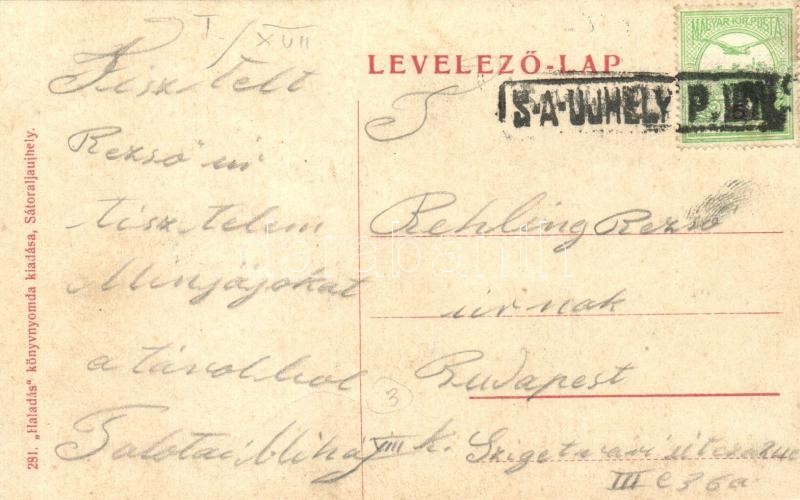 T/XVII
LEVELEZŐ-LAP
MAGYAR·KIR·POSTA
S-A-UJHELY P.
Tisztelt
Rezső úr
tisztelem
Minjájokat
a távolbol
Palotai Mihaj
T
Rehling Rezső
úrnak
Budapest
VIII k. Szigetvári útcza
III e 36a
3
281. „Haladás" könyvnyomda kiadása, Sátoraljaujhely.
darabanth